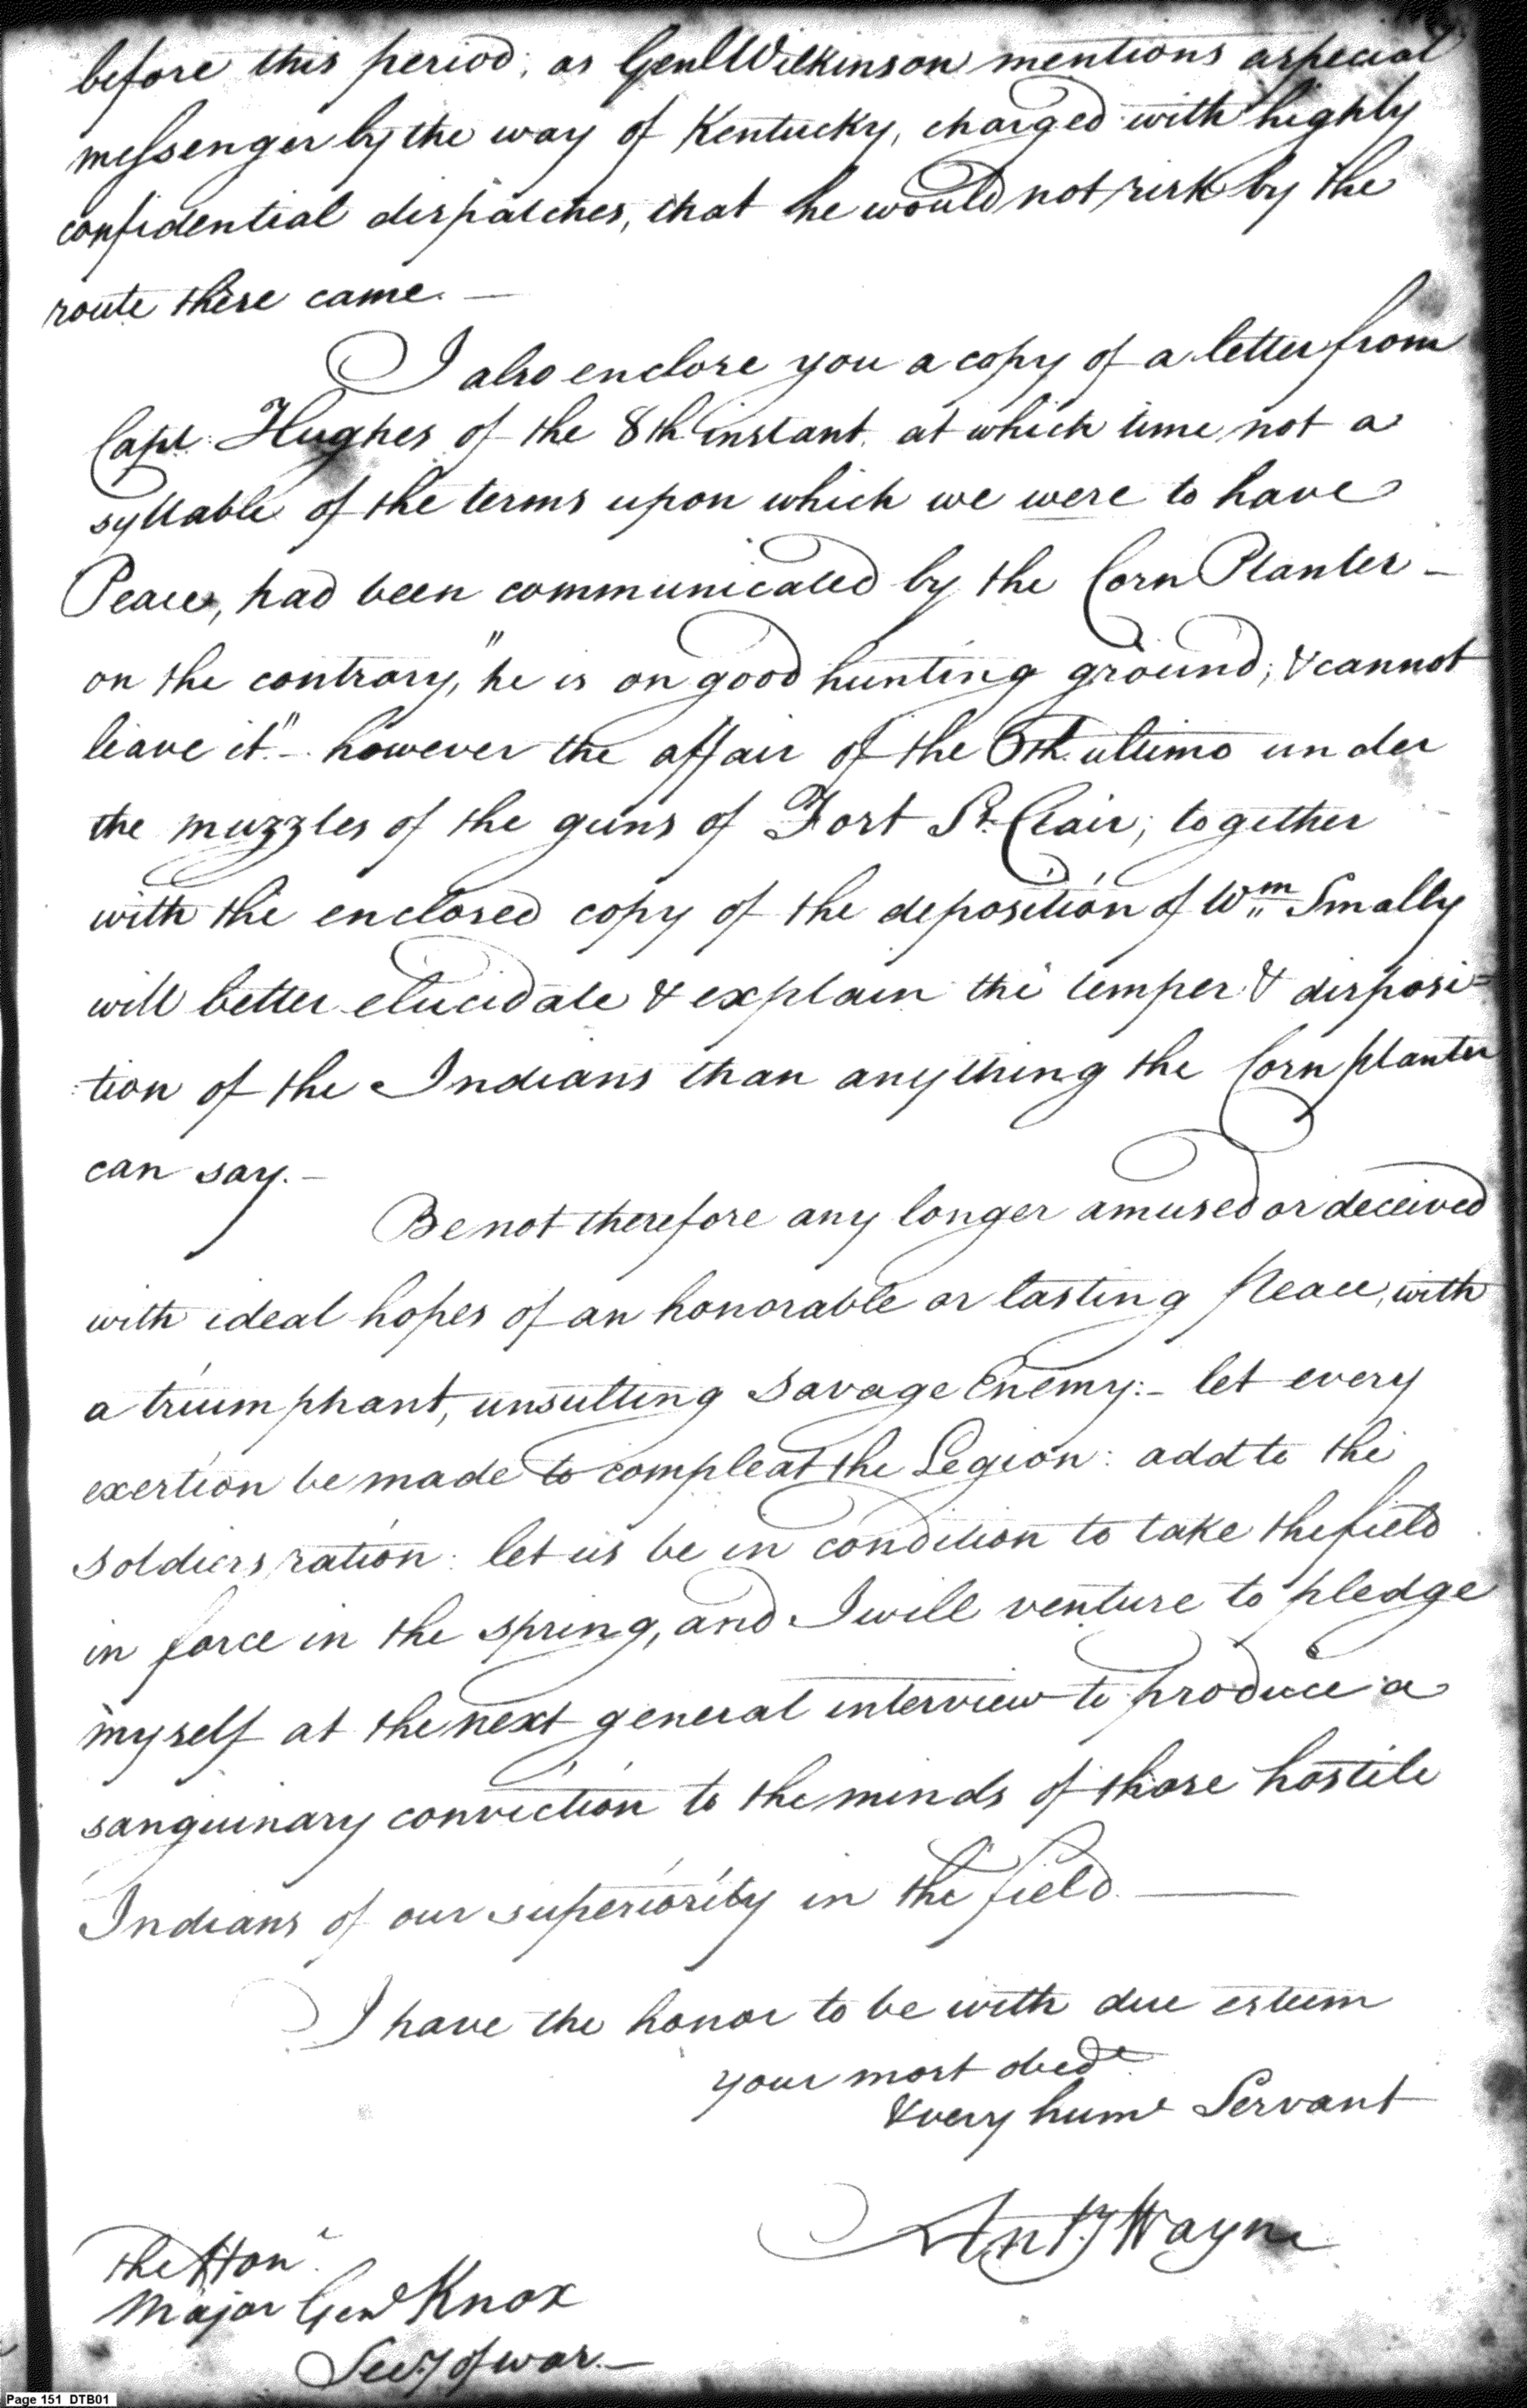 before this period, as Genl Wilkinson mentions a special
messenger by the way of Kentucky, charged with highly
confidential dispatches, that he would not risk by the
route these came. —
I also enclose you a copy of a letter from
Capt. Hughes of the 8th instant, at which time not a
syllable of the terms upon which we were to have
Peace, had been communicated by the Corn Planter —
on the contrary, "he is on good hunting ground; & cannot
leave it" – however the affair of the 6th ultimo under
the muzzles of the guns of Fort St. Clair; together
with the enclosed copy of the deposition of Wm Smally
will better elucidate & explain the temper & disposi=
:tion of the Indians than anything the Corn planter
can say. –
Be not therefore any longer amused or deceived
with ideal hopes of an honorable or lasting peace, with
a triumphant, unsulting savage Enemy: – let every
exertion be made to compleat the Legion: add to the
soldiers ration: let us be in condition to take the field
in force in the spring, and I will venture to pledge
myself at the next general interview to produce a
sanguinary conviction to the minds of those hostile
Indians of our superiority in the field. —
I have the honor to be with due esteem
your most obedt
& very huml Servant
Anty Wayne
The Honl
Major Genl Knox
Secy of war. —
Page 151 DTB01